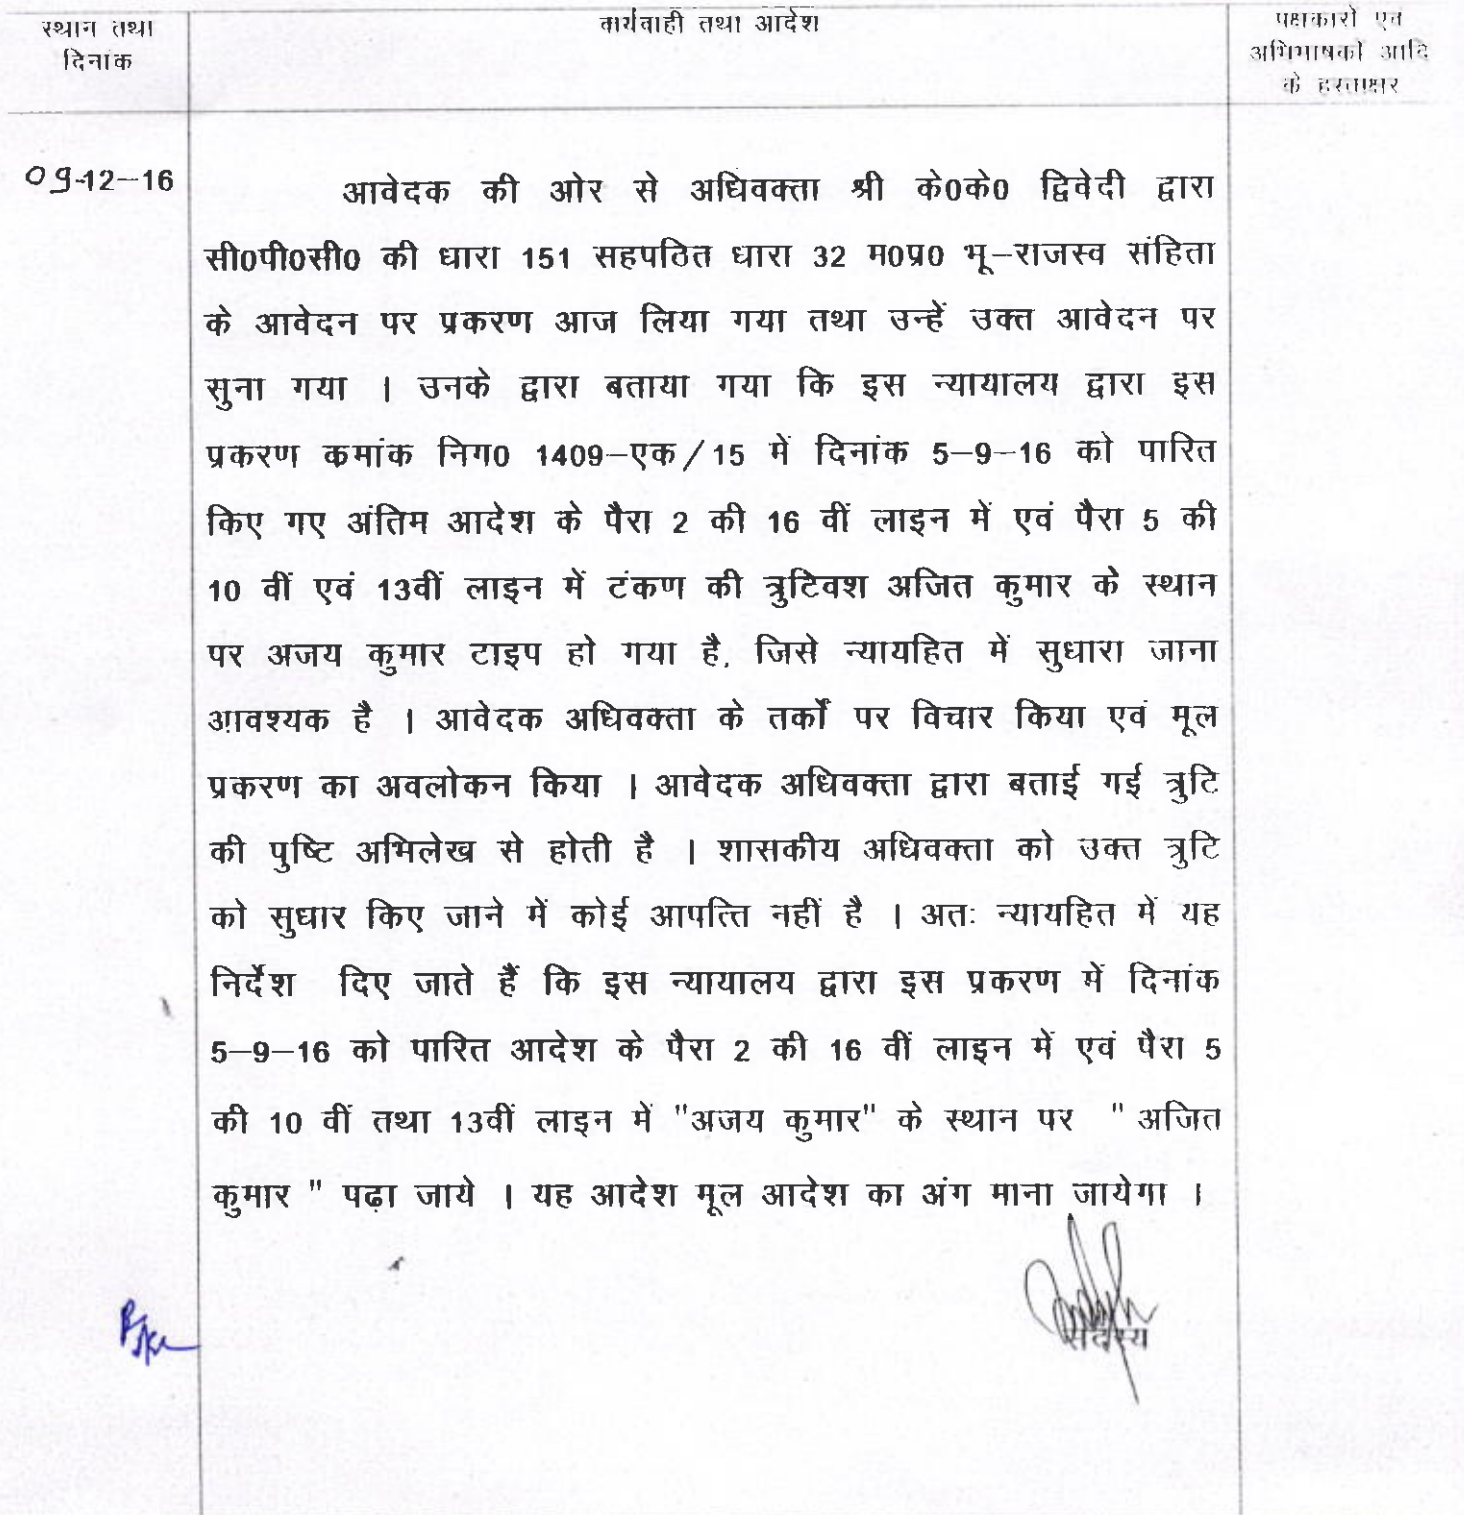 स्थान तथा
दिनांक
कार्यवाही तथा आदेश
पक्षकारों एवं
अभिभाषकों आदि
के हस्ताक्षर
09-12-16
आवेदक की ओर से अधिवक्ता श्री के0के0 द्विवेदी द्वारा
सी0पी0सी0 की धारा 151 सहपठित धारा 32 म0प्र0 भू-राजस्व संहिता
के आवेदन पर प्रकरण आज लिया गया तथा उन्हें उक्त आवेदन पर
सुना गया । उनके द्वारा बताया गया कि इस न्यायालय द्वारा इस
प्रकरण कमांक निग0 1409-एक/15 में दिनांक 5-9-16 को पारित
किए गए अंतिम आदेश के पैरा 2 की 16 वीं लाइन में एवं पैरा 5 की
10 वीं एवं 13वीं लाइन में टंकण की त्रुटिवश अजित कुमार के स्थान
पर अजय कुमार टाइप हो गया है, जिसे न्यायहित में सुधारा जाना
आवश्यक है । आवेदक अधिवक्ता के तर्कों पर विचार किया एवं मूल
प्रकरण का अवलोकन किया । आवेदक अधिवक्ता द्वारा बताई गई त्रुटि
की पुष्टि अभिलेख से होती है । शासकीय अधिवक्ता को उक्त त्रुटि
को सुधार किए जाने में कोई आपत्ति नहीं है । अतः न्यायहित में यह
निर्देश दिए जाते हैं कि इस न्यायालय द्वारा इस प्रकरण में दिनांक
5-9-16 को पारित आदेश के पैरा 2 की 16 वीं लाइन में एवं पैरा 5
की 10 वीं तथा 13वीं लाइन में "अजय कुमार" के स्थान पर " अजित
कुमार " पढ़ा जाये । यह आदेश मूल आदेश का अंग माना जायेगा ।
सदस्य